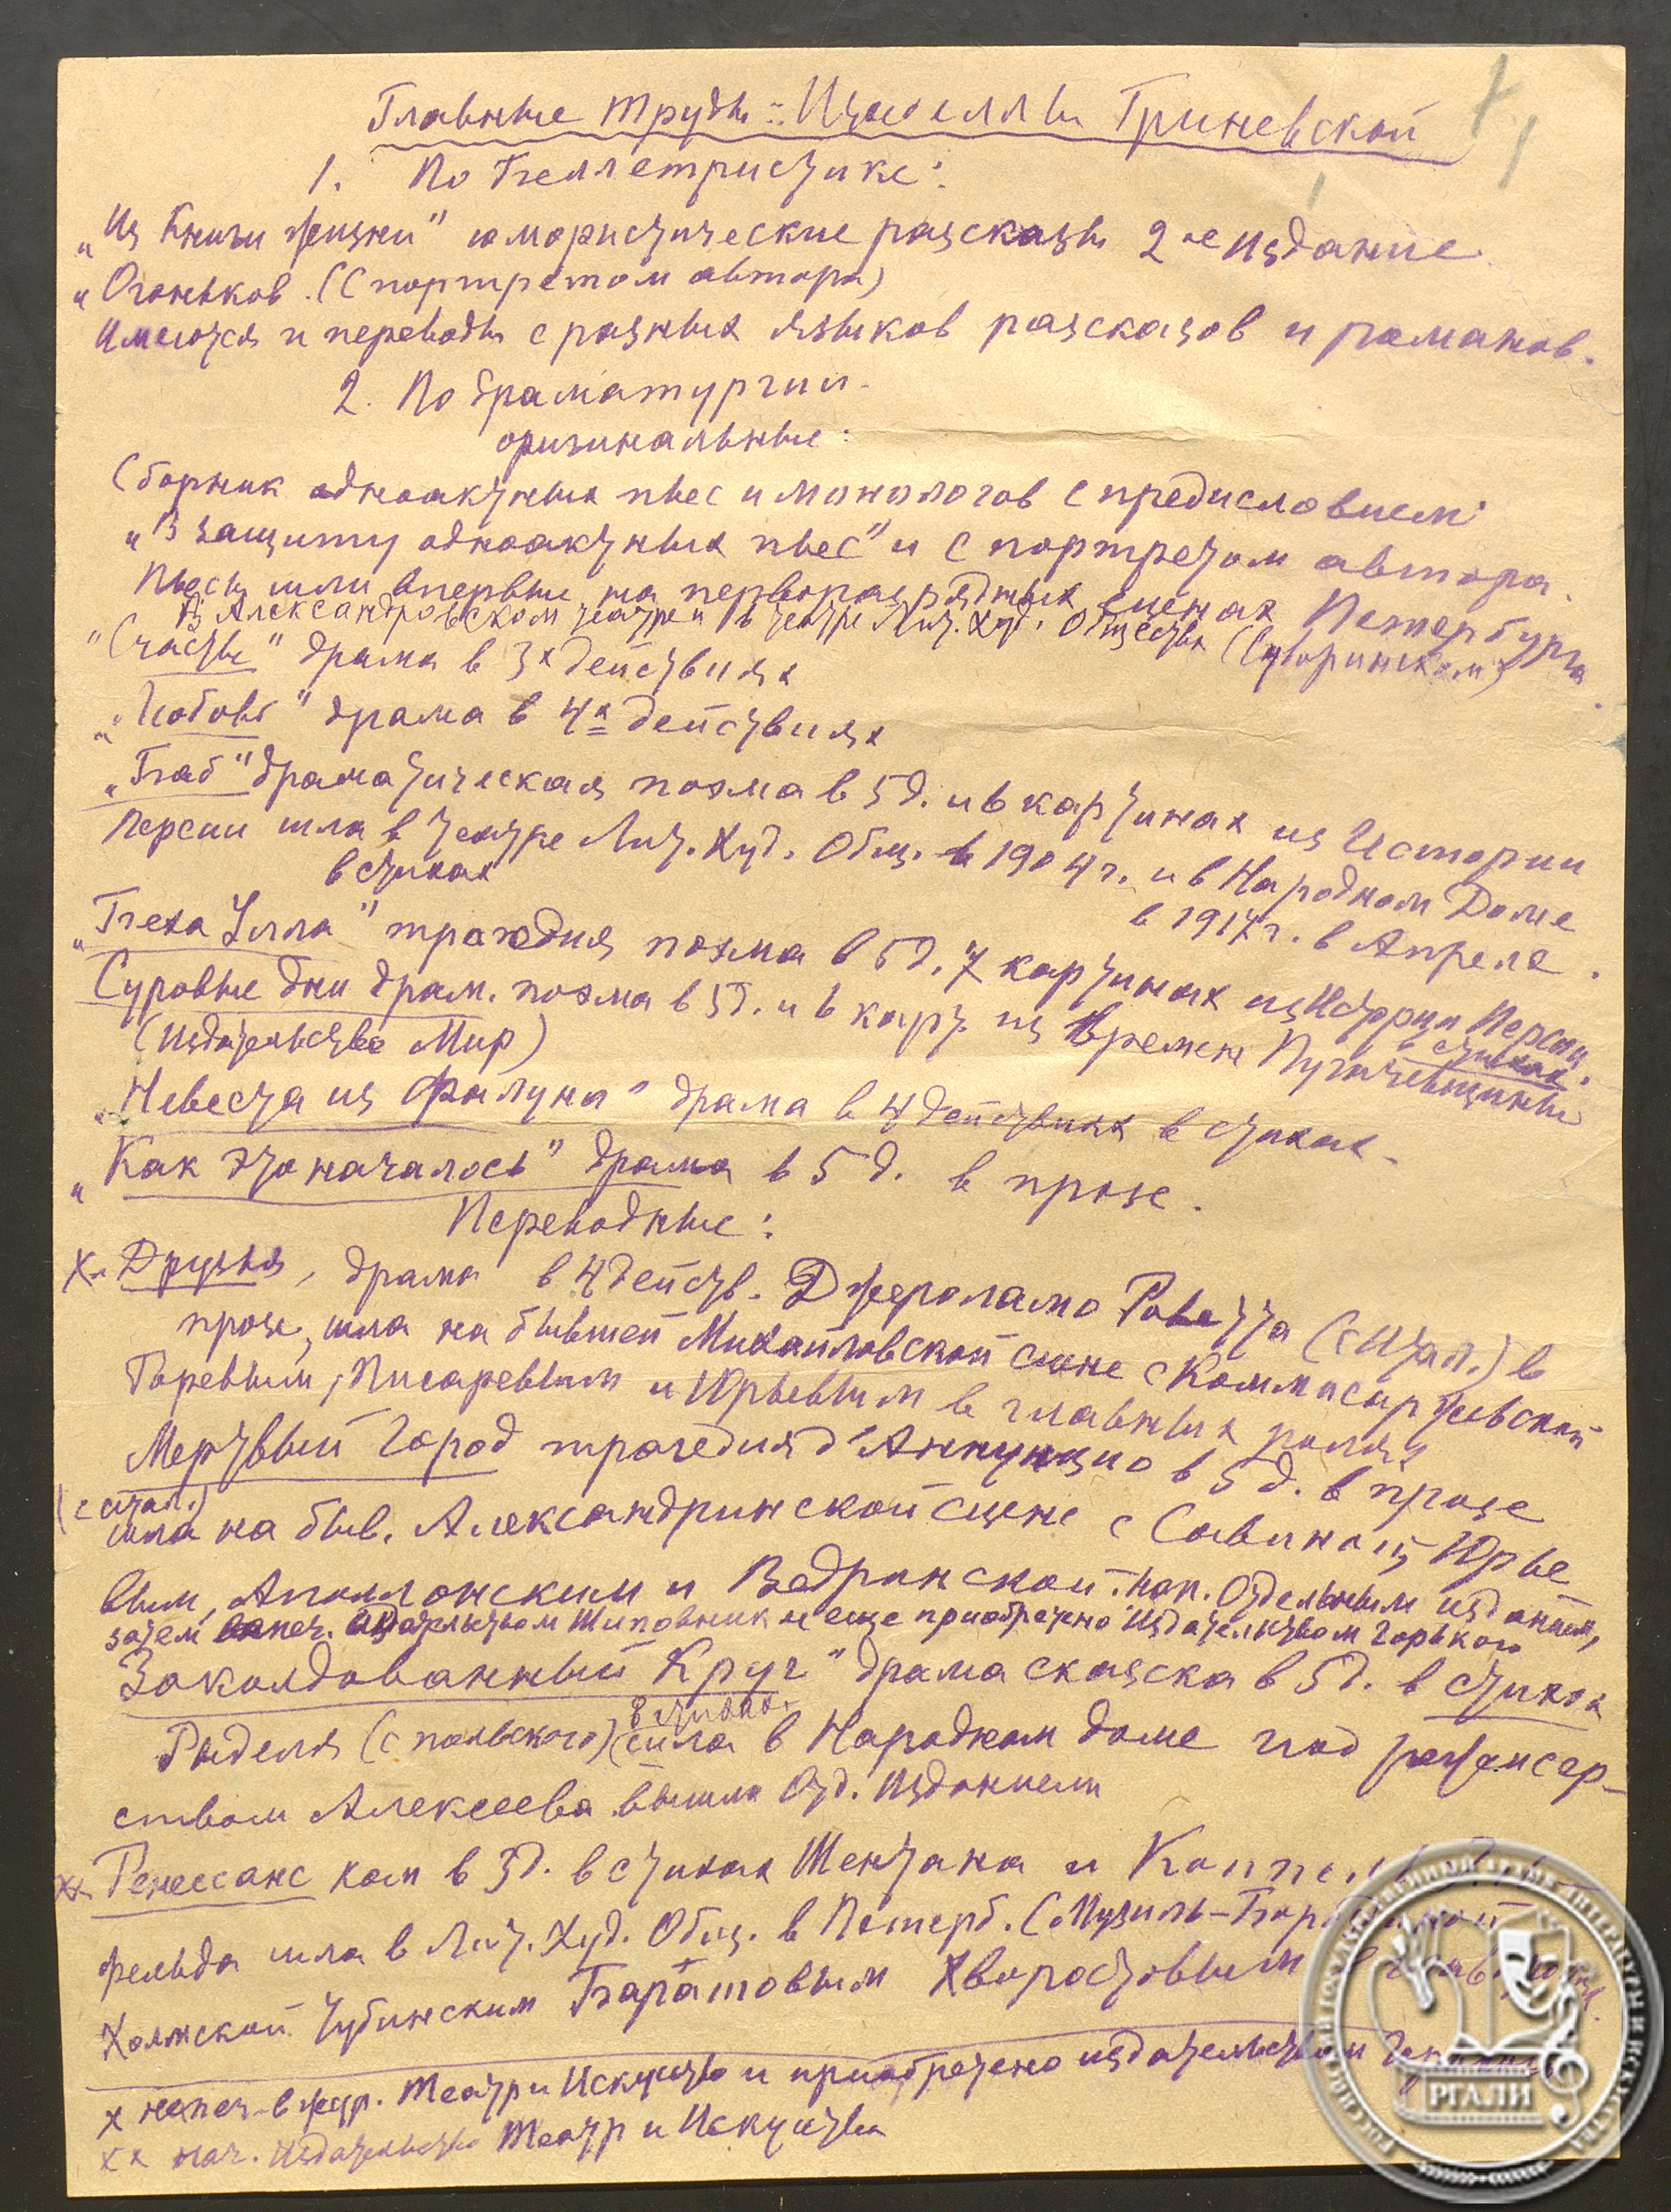 Главные труды: Изабеллы Гриневской
1
1. По беллетристике:
„Из Книги жизни" юмористические разсказы 2-ое издание.
„Огоньков. (С портретом автора)
Имеются и переводы с разных языков разсказов и романов.
2. По драматургии.
оригинальные:
Сборник одноактных пьес и монологов с предисловием
„В защиту одноактных пьес" и с портретом автора.
Пьесы шли впервые на перворазрядных сценах Петербурга
В Александровском театре и в театре Лит. Худ. Общества (Суворинском)
"Счастье" драма в 3х действиях
„Любовь" драма в 4х действиях
„Баб" драматическая поэма в 5 д. и 6 картинах из Истории
Персии шла в театре Лит. Худ. Общ. в 1904 г. и в Народном Доме
в стихах
в 1917 г. в Апреле.
„Беха Улла" трагедия поэма в 5 д. 7 картинах из Истории Персии
в стихах.
Суровые дни драм. поэма в 5 д. и 6 карт. из времен Пугачевщины
(Издательство Мир)
„Невеста из Фалуна" драма в 4 действиях в стихах.
„Как это началось" драма в 5 д. в прозе.
Переводные:
х „Друзья, драма в 4 действ. Джероламо Роветта (с Итал.) в
прозе, шла на бывшей Михайловской сцене с Коммисаржевской
Горевым, Писаревым и Юрьевым в главных ролях
Мертвый Город трагедия д'Аннунцио в 5 д. в прозе
(с итал.)
шла на быв. Александринской сцене с Савиной, Юрье
вым, Аполлонским и Ведринской. Нап. Отдельным изданием,
затем напеч. Издательством Шиповник и еще приобретено Издательством Горького
Заколдованный Круг" драма сказка в 5 д. в стихах
Рыделя (с польского) шла в Народном доме под режиссер-
в стихах.
ством Алексеева вышла Отд. Изданием
хх Ренессанс ком в 3 д. в стихах Шентана и Коппель
фельда шла в Лит. Худ. Общ. в Петерб. С Музиль-Бороздиной
Холмской Чубинским Баратовым Хворостовым
х напеч. в жур. Театр и Искусство и приобретено издательством
хх нап. Издательство Театр и Искусства
РГАЛИ
РОССИЙСКИЙ ГОСУДАРСТВЕННЫЙ АРХИВ ЛИТЕРАТУРЫ И ИСКУССТВА